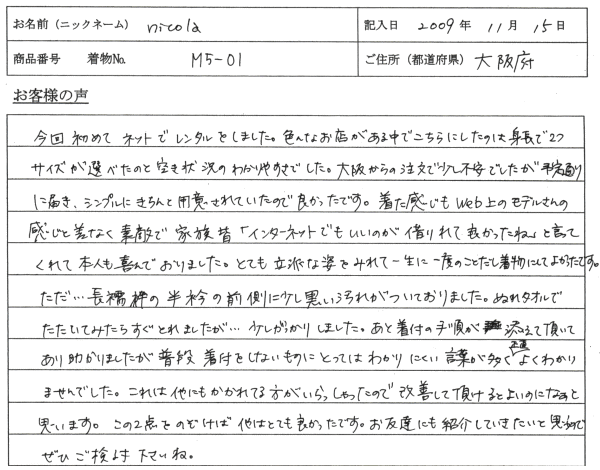 お名前（ニックネーム） nicola 記入日 2009 年 11 月 15 日
商品番号 着物No. M5-01 ご住所（都道府県） 大阪府
お客様の声
今回 初めて ネットで レンタルをしました。色んなお店がある中でこちらにしたのは身長で2つ
サイズが選べたのと 空き状況のわかりやすさでした。大阪からの注文で少し不安でしたが 予定通り
に届き、シンプルにきちんと用意されていたので良かったです。着た感じもweb上のモデルさんの
感じと差なく 素敵で 家族皆「インターネットでもいいのが 借りれて 良かったね」と言って
くれて 本人も喜んでおりました。とても 立派な姿をみれて 一生に一度のことだし着物にしてよかったです。
ただ…長襦袢の半衿の前側に少し黒い汚れがついておりました。ぬれタオルで
たたいてみたらすぐとれましたが… 少しがっかりしました。あと着付の手順が 添えて頂いて
あり助かりましたが 普段 着付をしないものにとってはわかりにくい 言葉が多く 正直 よくわかり
ませんでした。これは他にもかかれてる方がいらっしゃったので 改善して頂けるとよいのになぁと
思います。 この2点をのぞけば 他はとても良かったです。お友達にも紹介していきたいと思うので
ぜひ ご検討 下さいね。